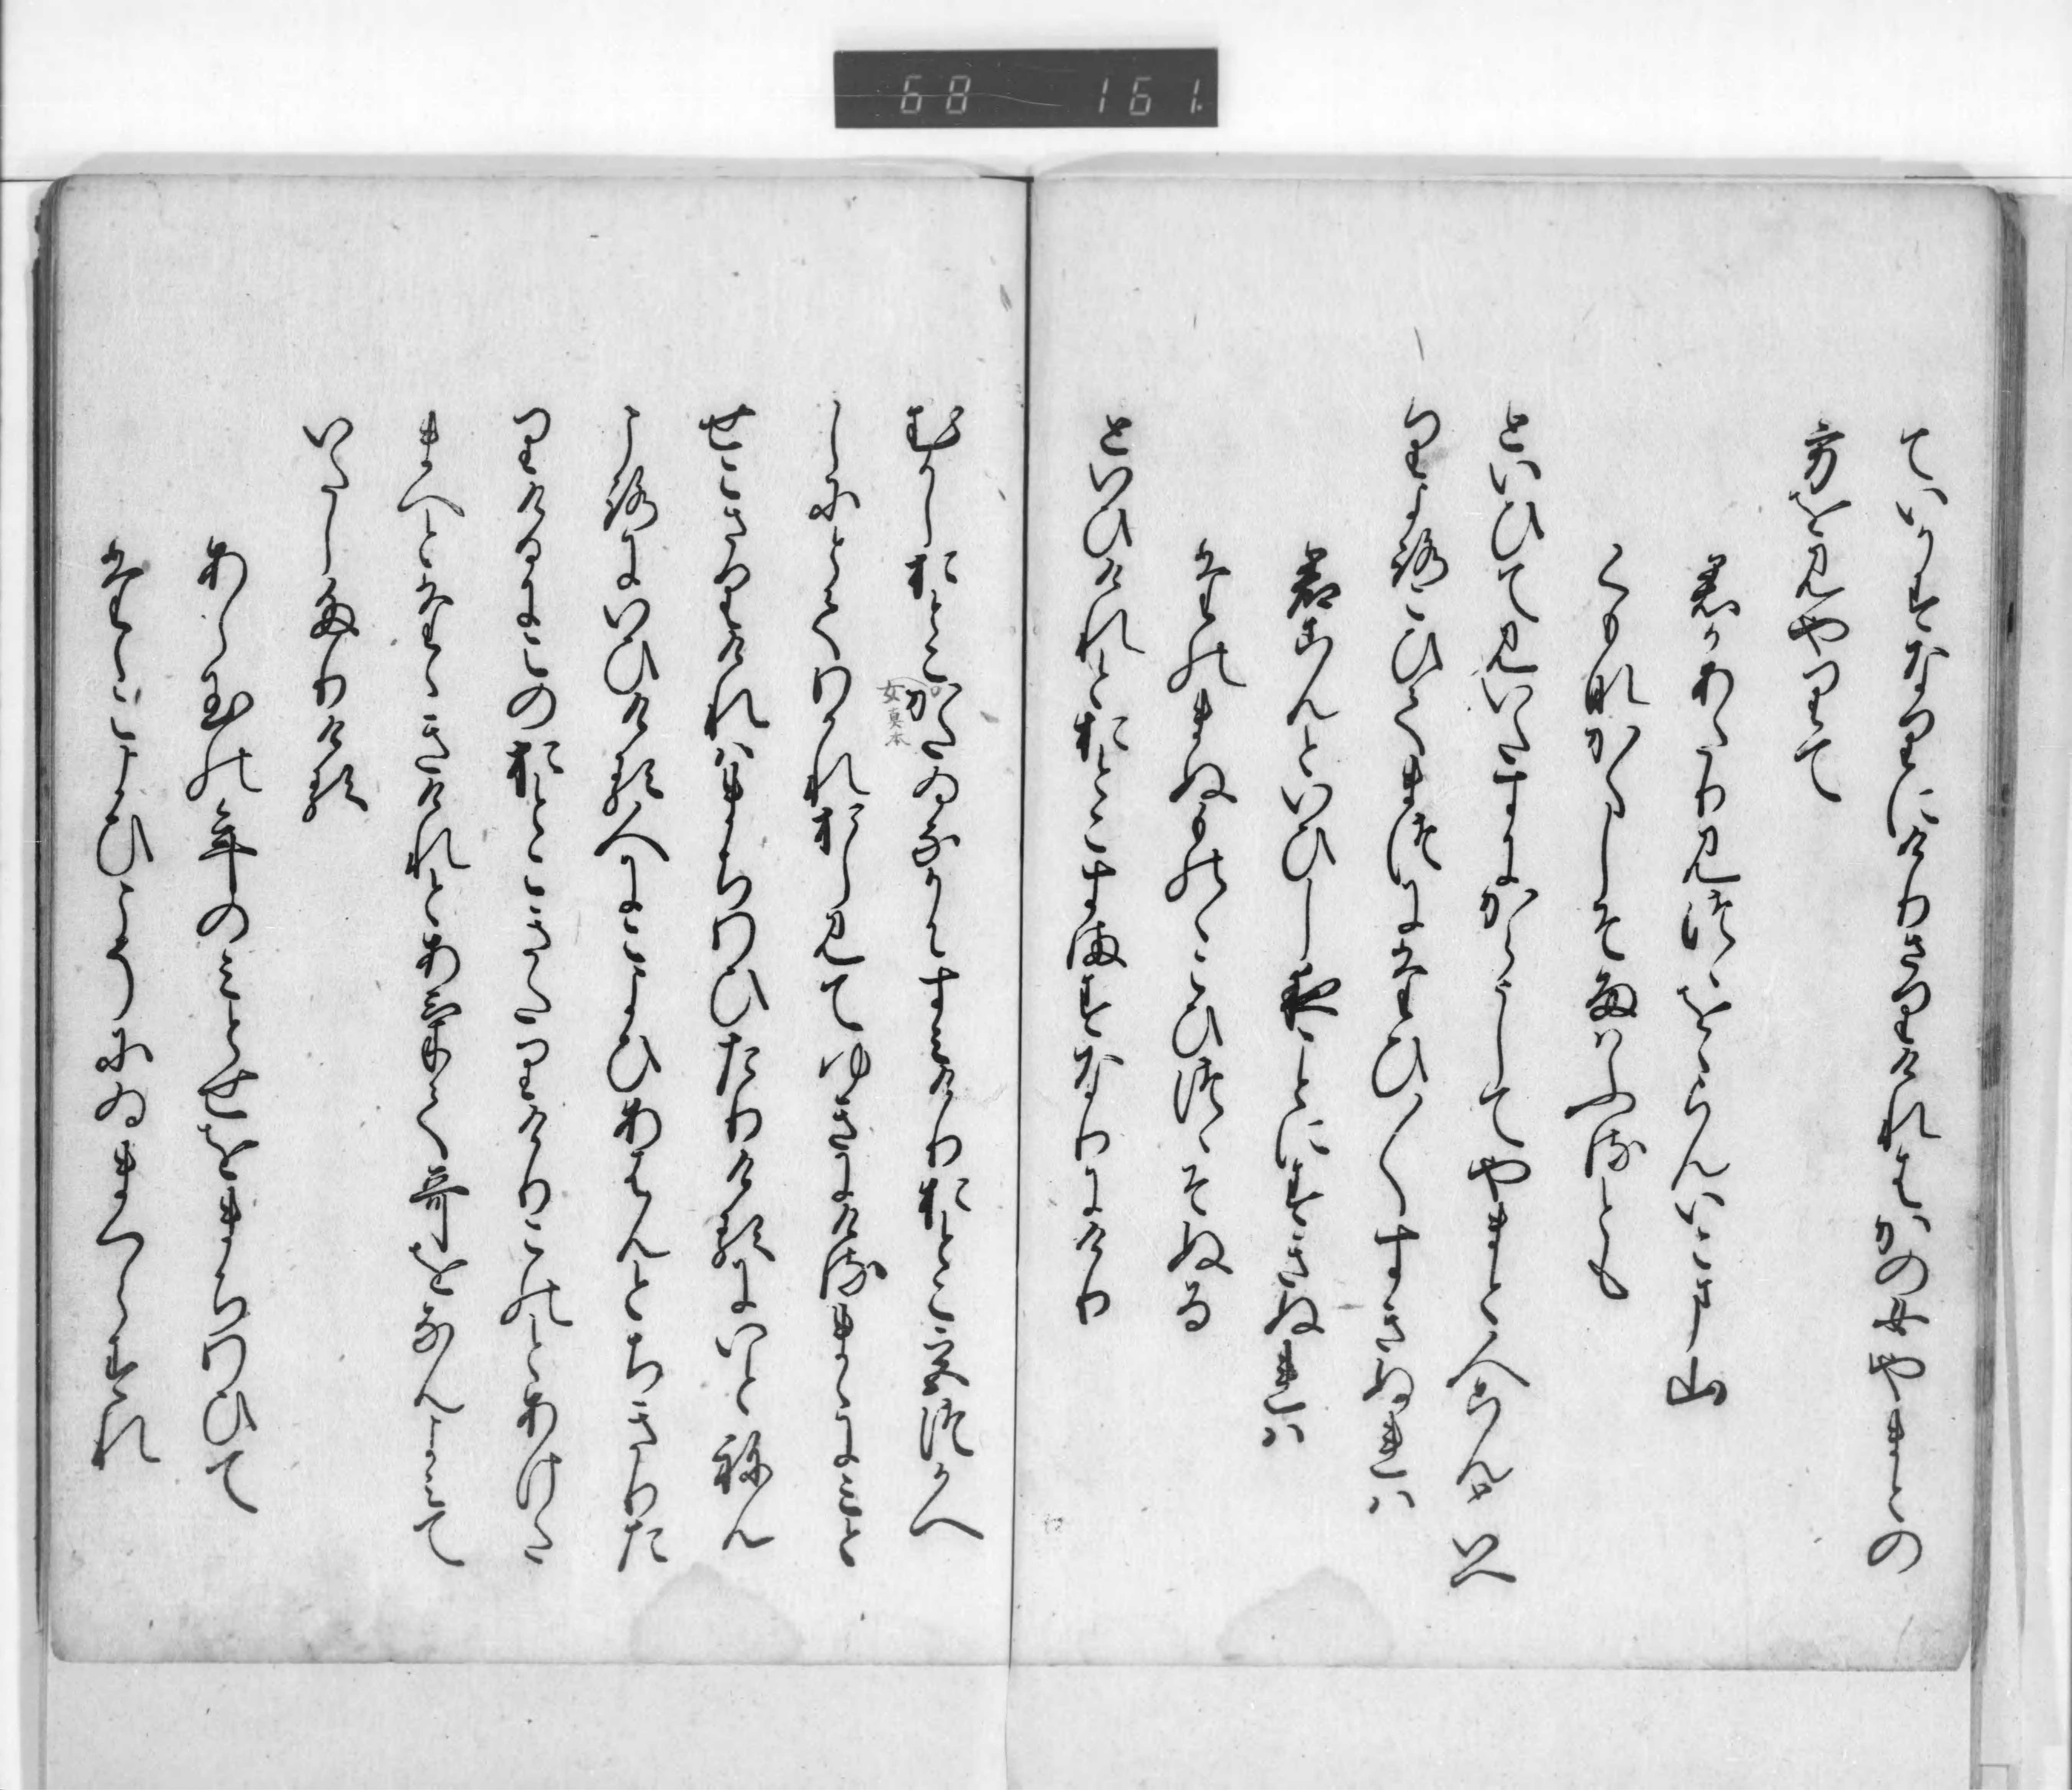 68 161
ていかすなりにけりさりけれはかの女やまとの
方を見やりて
君かあたり見つゝをくらんいこま山
くもなかくしそ雨はふるとも
といひて見いたすにからうしてやまと人こんといへ
りよろこひてまつにたひ〱すきぬれは
君こんといひし夜ことにすきぬれは
たのまぬものゝこひつゝそぬる
といひけれとおとこすますなりにけり
むかしおとこかたゐなかにすみけりおとこ宮つかへ
女真本
しにとてわかれおしみてゆきにけるまゝにみとせ
せこさりけれはまちわひたりけるにいとねん
ころにいひける人にこよひあはんとちきりた
りけるにこのおとこきたりけりこのとあけた
まへとたゝきけれとあけて哥をなんよみて
いたしたりける
あら玉の年のみとせをまちわひて
たゝこよひこそにゐまくらすれ